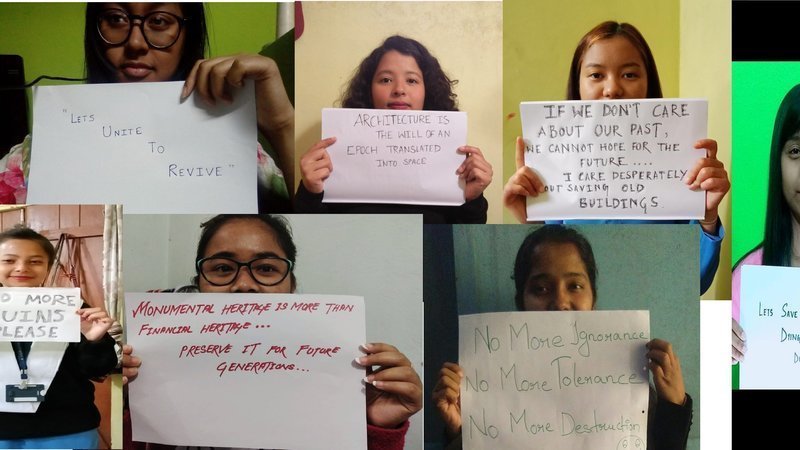 "LETS
UNITE
TO
REVIVE"
ARCHITECTURE IS
THE WILL OF AN
EPOCH TRANSLATED
INTO SPACE
IF WE DON'T CARE
ABOUT OUR PAST,
WE CANNOT HOPE FOR THE
FUTURE ....
I CARE DESPERATELY
OUT SAVING OLD
BUILDINGS.
MORE
PLEASE
MONUMENTAL HERITAGE IS MORE THAN
FINANCIAL HERITAGE...
PRESERVE IT FOR FUTURE
GENERATIONS...
No More Ignorance
No More Tolerance
No More Destruction
LETS SAVE